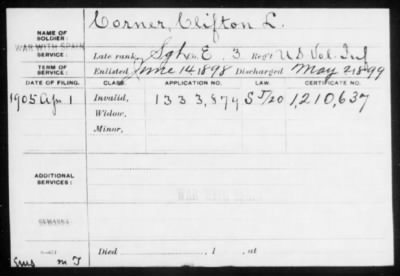 NAME OF SOLDIER: Corner, Clifton L.
WAR WITH SPAIN
SERVICE: Late rank, Sgt Co. E, 3 Reg't US Vol. Inf
TERM OF SERVICE: Enlisted June 14 1898 Discharged May 2 1899
DATE OF FILING. CLASS. APPLICATION NO. LAW. CERTIFICATE NO.
1905 Apr 1 Invalid, 1333,874 1,210,637
Widow,
Minor,
ADDITIONAL SERVICES:
WAR WITH SPAIN
REMARKS:
Died , 1 , at